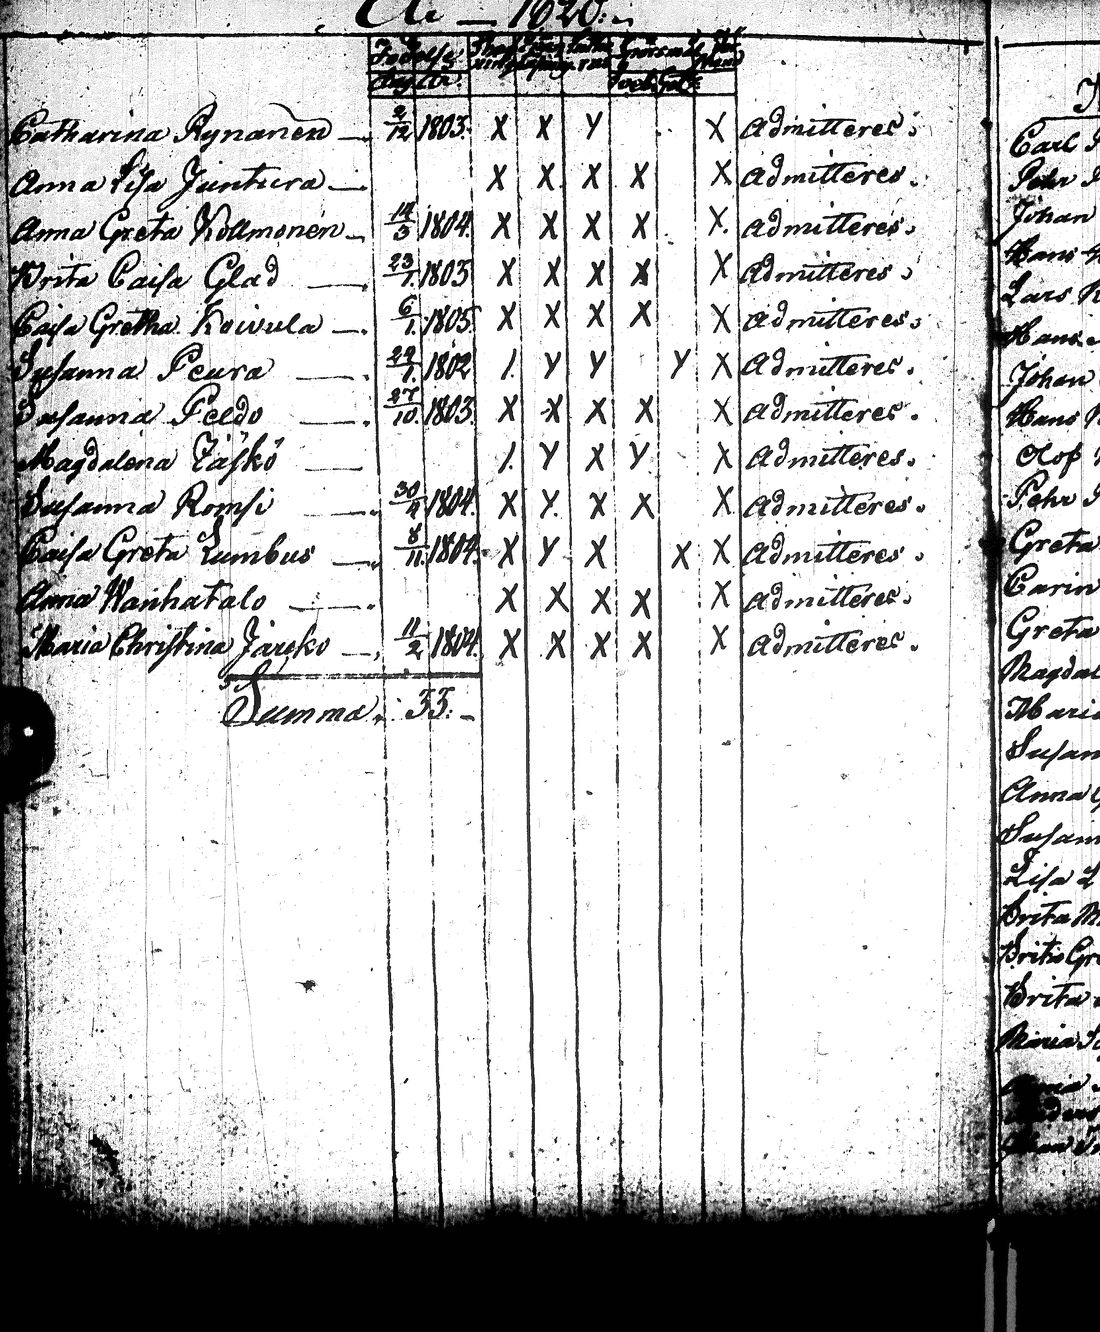 1820.
Födelse
dag. År.
Catharina Rynänen 2/12 1803. X X Y X admitteres.
Anna Lisa Juntura X X X X X admitteres.
Anna Greta Kollmonen 14/3 1804. X X X X X admitteres.
Brita Caisa Glad 23/1. 1803 X X X X X admitteres.
Caisa Gretha Koivula 6/1. 1805. X X X X X admitteres.
Susanna Peura 29/1. 1802 /. Y Y Y X admitteres.
Susanna Peldo 27/10. 1803. X X X X X admitteres.
Magdalena Jäskö /. Y X Y X admitteres.
Susanna Romsi 30/4 1804. X Y. X X X admitteres.
Caisa Greta Lumbus 8/11. 1804. X Y X X X admitteres.
Anna Wanhatalo X X X X X admitteres.
Maria Christina Järcko 11/2 1804. X X X X X admitteres.
Summa. 33.
Carl
Pehr
Johan
Hans
Lars
Hans
Johan
Hans
Olof
Pehr
Greta
Carin
Greta
Magdal
Maria
Susan
Anna G
Susan
Lisa L
Brita M
Brita Gre
Brita
Maria